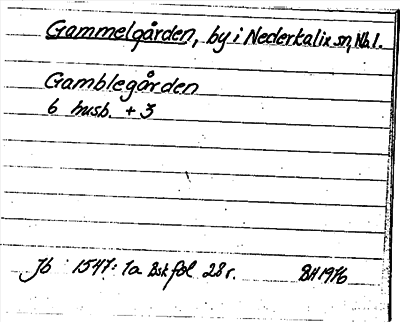 Gammelgården, by i Nederkalix sn, Nb l.
Gamblegården
6 husb. + 3
Jb 1547: 1a Bsk fol 28 r. BH 1976